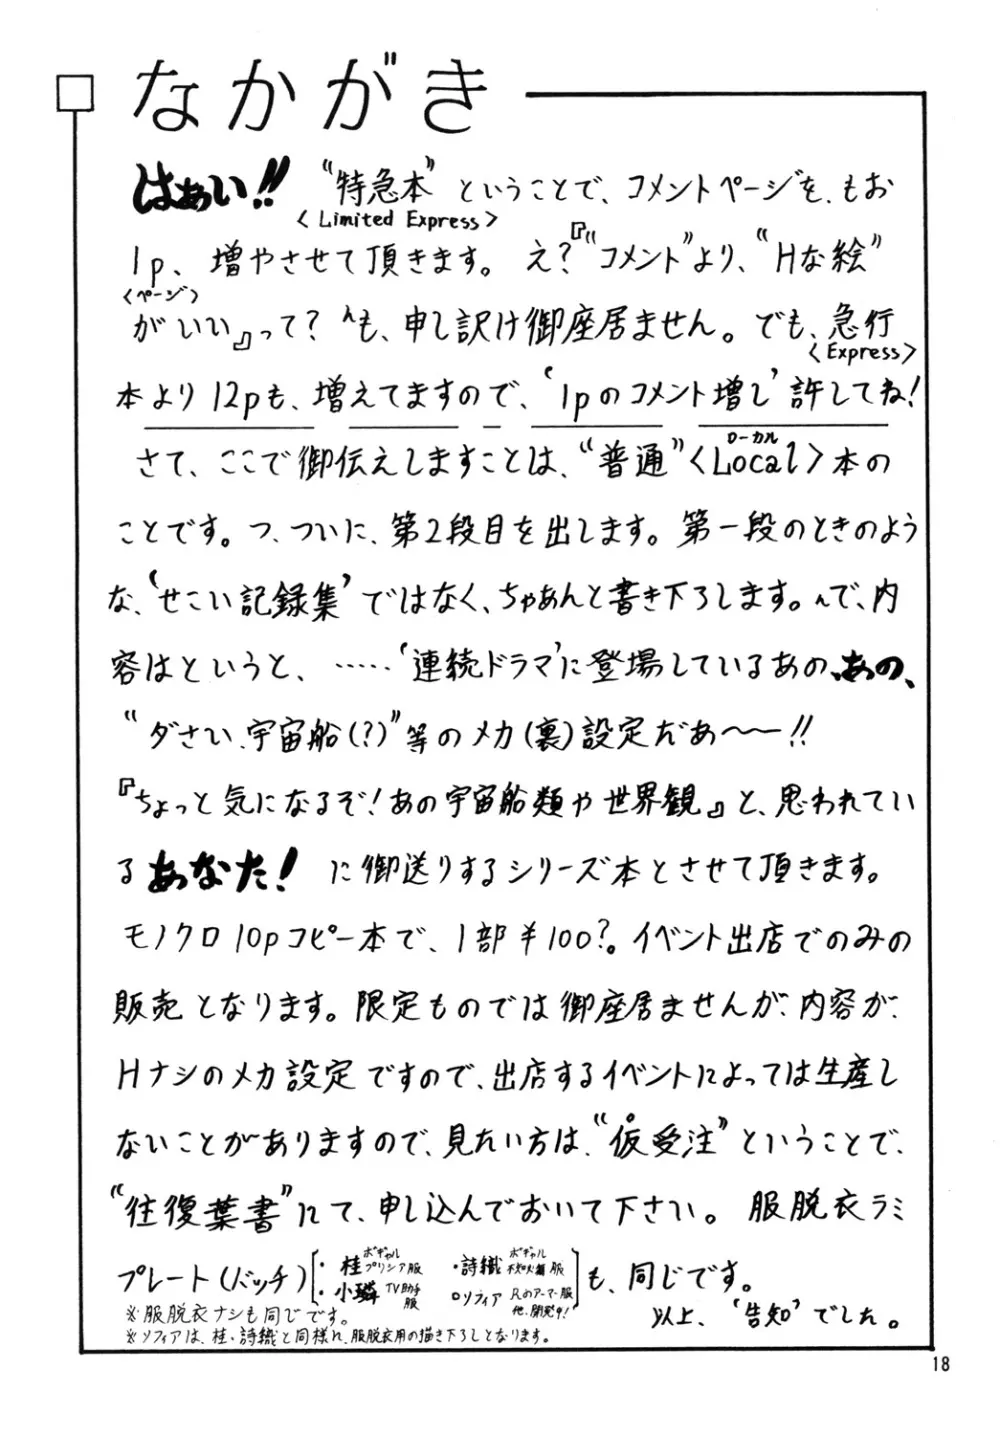 なかがき
はぁい!! “特急本” ということで、コメントページを、もお
〈Limited Express〉
1p、増やさせて頂きます。え?『“コメント”より、“Hな絵”
〈ページ〉
がいい』って? へも、申し訳け御座居ません。でも、急行
〈Express〉
本より12pも、増えてますので、‘1pのコメント増し’許してね!
さて、ここで御伝えしますことは、“普通”〈Local〉本の
ローカル
ことです。つ、ついに、第2段目を出します。第一段のときのよう
な、‘せこい記録集’ではなく、ちゃあんと書き下ろします。んで、内
容はというと、……‘連続ドラマ’に登場しているあの、あの、
“ダさい、宇宙船(?)”等のメカ(裏)設定だあ〜〜!!
『ちょっと気になるぞ!あの宇宙船類や世界観』と、思われてい
るあなた! に御送りするシリーズ本とさせて頂きます。
モノクロ10pコピー本で、1部¥100?。イベント出店でのみの
販売となります。限定ものでは御座居ませんが、内容が、
Hナシのメカ設定ですので、出店するイベントによっては生産し
ないことがありますので、見たい方は、“仮受注”ということで、
“往復葉書”にて、申し込んでおいて下さい。服脱衣ラミ
プレート(バッチ)
・桂 ボギャル プリシア服
・詩織 ボギャル 不知火舞服
・小璘 TV助手服
○ソフィア Rのアーマー服 他、開発中!
も、同じです。
※服脱衣ナシも同じです。
※ソフィアは、桂・詩織と同様に、服脱衣用の描き下ろしとなります。
以上、‘告知’でした。
18